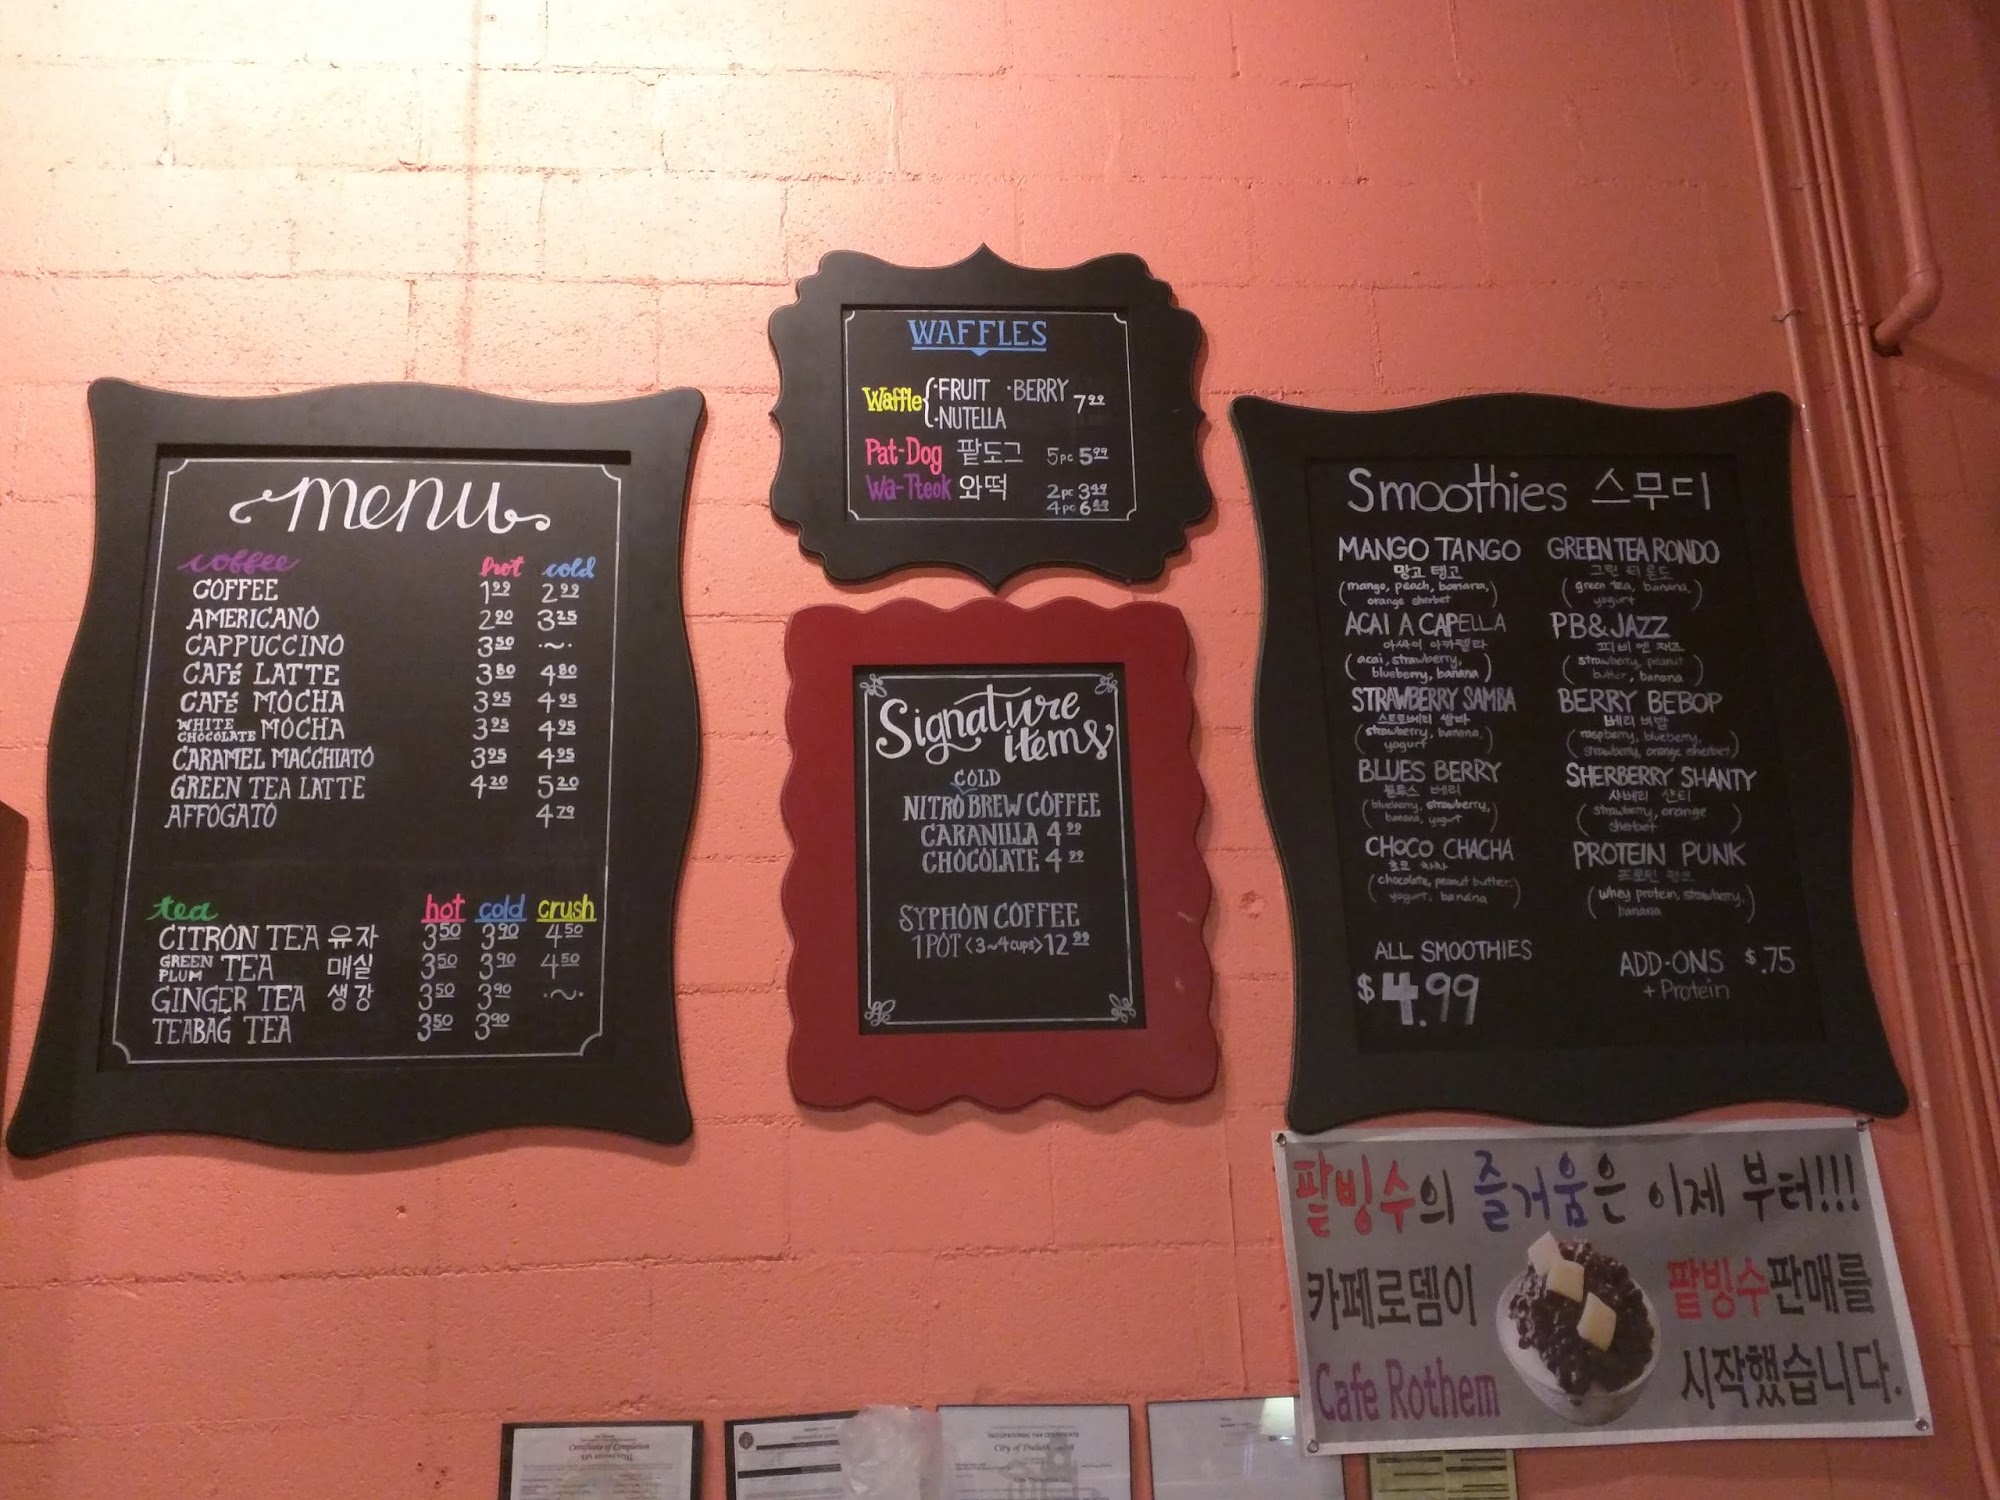 menu
coffee hot cold
COFFEE 1.99 2.99
AMERICANO 2.90 3.25
CAPPUCCINO 3.50 ·~·
CAFÉ LATTE 3.80 4.80
CAFÉ MOCHA 3.95 4.95
WHITE CHOCOLATE MOCHA 3.95 4.95
CARAMEL MACCHIATO 3.95 4.95
GREEN TEA LATTE 4.20 5.20
AFFOGATO 4.79
tea hot cold crush
CITRON TEA 유자 3.50 3.90 4.50
GREEN PLUM TEA 매실 3.50 3.90 4.50
GINGER TEA 생강 3.50 3.90 ·~·
TEABAG TEA 3.50 3.90
WAFFLES
Waffle { ·FRUIT ·BERRY 7.99
·NUTELLA
Pat-Dog 팥도그 5pc 5.99
Wa-Tteok 와떡 2pc 3.49
4pc 6.49
Signature
items
COLD
NITRO BREW COFFEE
CARANILLA 4.99
CHOCOLATE 4.99
SYPHON COFFEE
1 POT <3~4 cups> 12.99
Smoothies 스무디
MANGO TANGO
망고 탱고
(mango, peach, banana,
orange sherbet)
ACAI A CAPELLA
아싸이 아카펠라
(acai, strawberry,
blueberry, banana)
STRAWBERRY SAMBA
스트로베리 쌈바
(strawberry, banana,
yogurt)
BLUES BERRY
블루스 베리
(blueberry, strawberry,
banana, yogurt)
CHOCO CHACHA
초코 차차
(chocolate, peanut butter,
yogurt, banana)
GREEN TEA RONDO
그린 티 론도
(green tea, banana,
yogurt)
PB&JAZZ
피비 엔 재즈
(strawberry, peanut
butter, banana)
BERRY BEBOP
베리 비밥
(raspberry, blueberry,
strawberry, orange sherbet)
SHERBERRY SHANTY
샤베리 샨티
(strawberry, orange
sherbet)
PROTEIN PUNK
프로틴 펑크
(whey protein, strawberry,
banana)
ALL SMOOTHIES
$4.99
ADD-ONS $.75
+ Protein
팥빙수의 즐거움은 이제 부터!!!
카페로뎀이 팥빙수판매를
Cafe Rothem 시작했습니다.
Certificate of Completion
OCCUPATIONAL TAX CERTIFICATE
City of Duluth